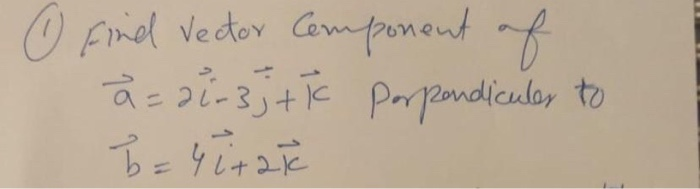 ① Find Vector Component of
a⃗ = 2i⃗ - 3j⃗ + k⃗ Perpendicular to
b⃗ = 4i⃗ + 2k⃗